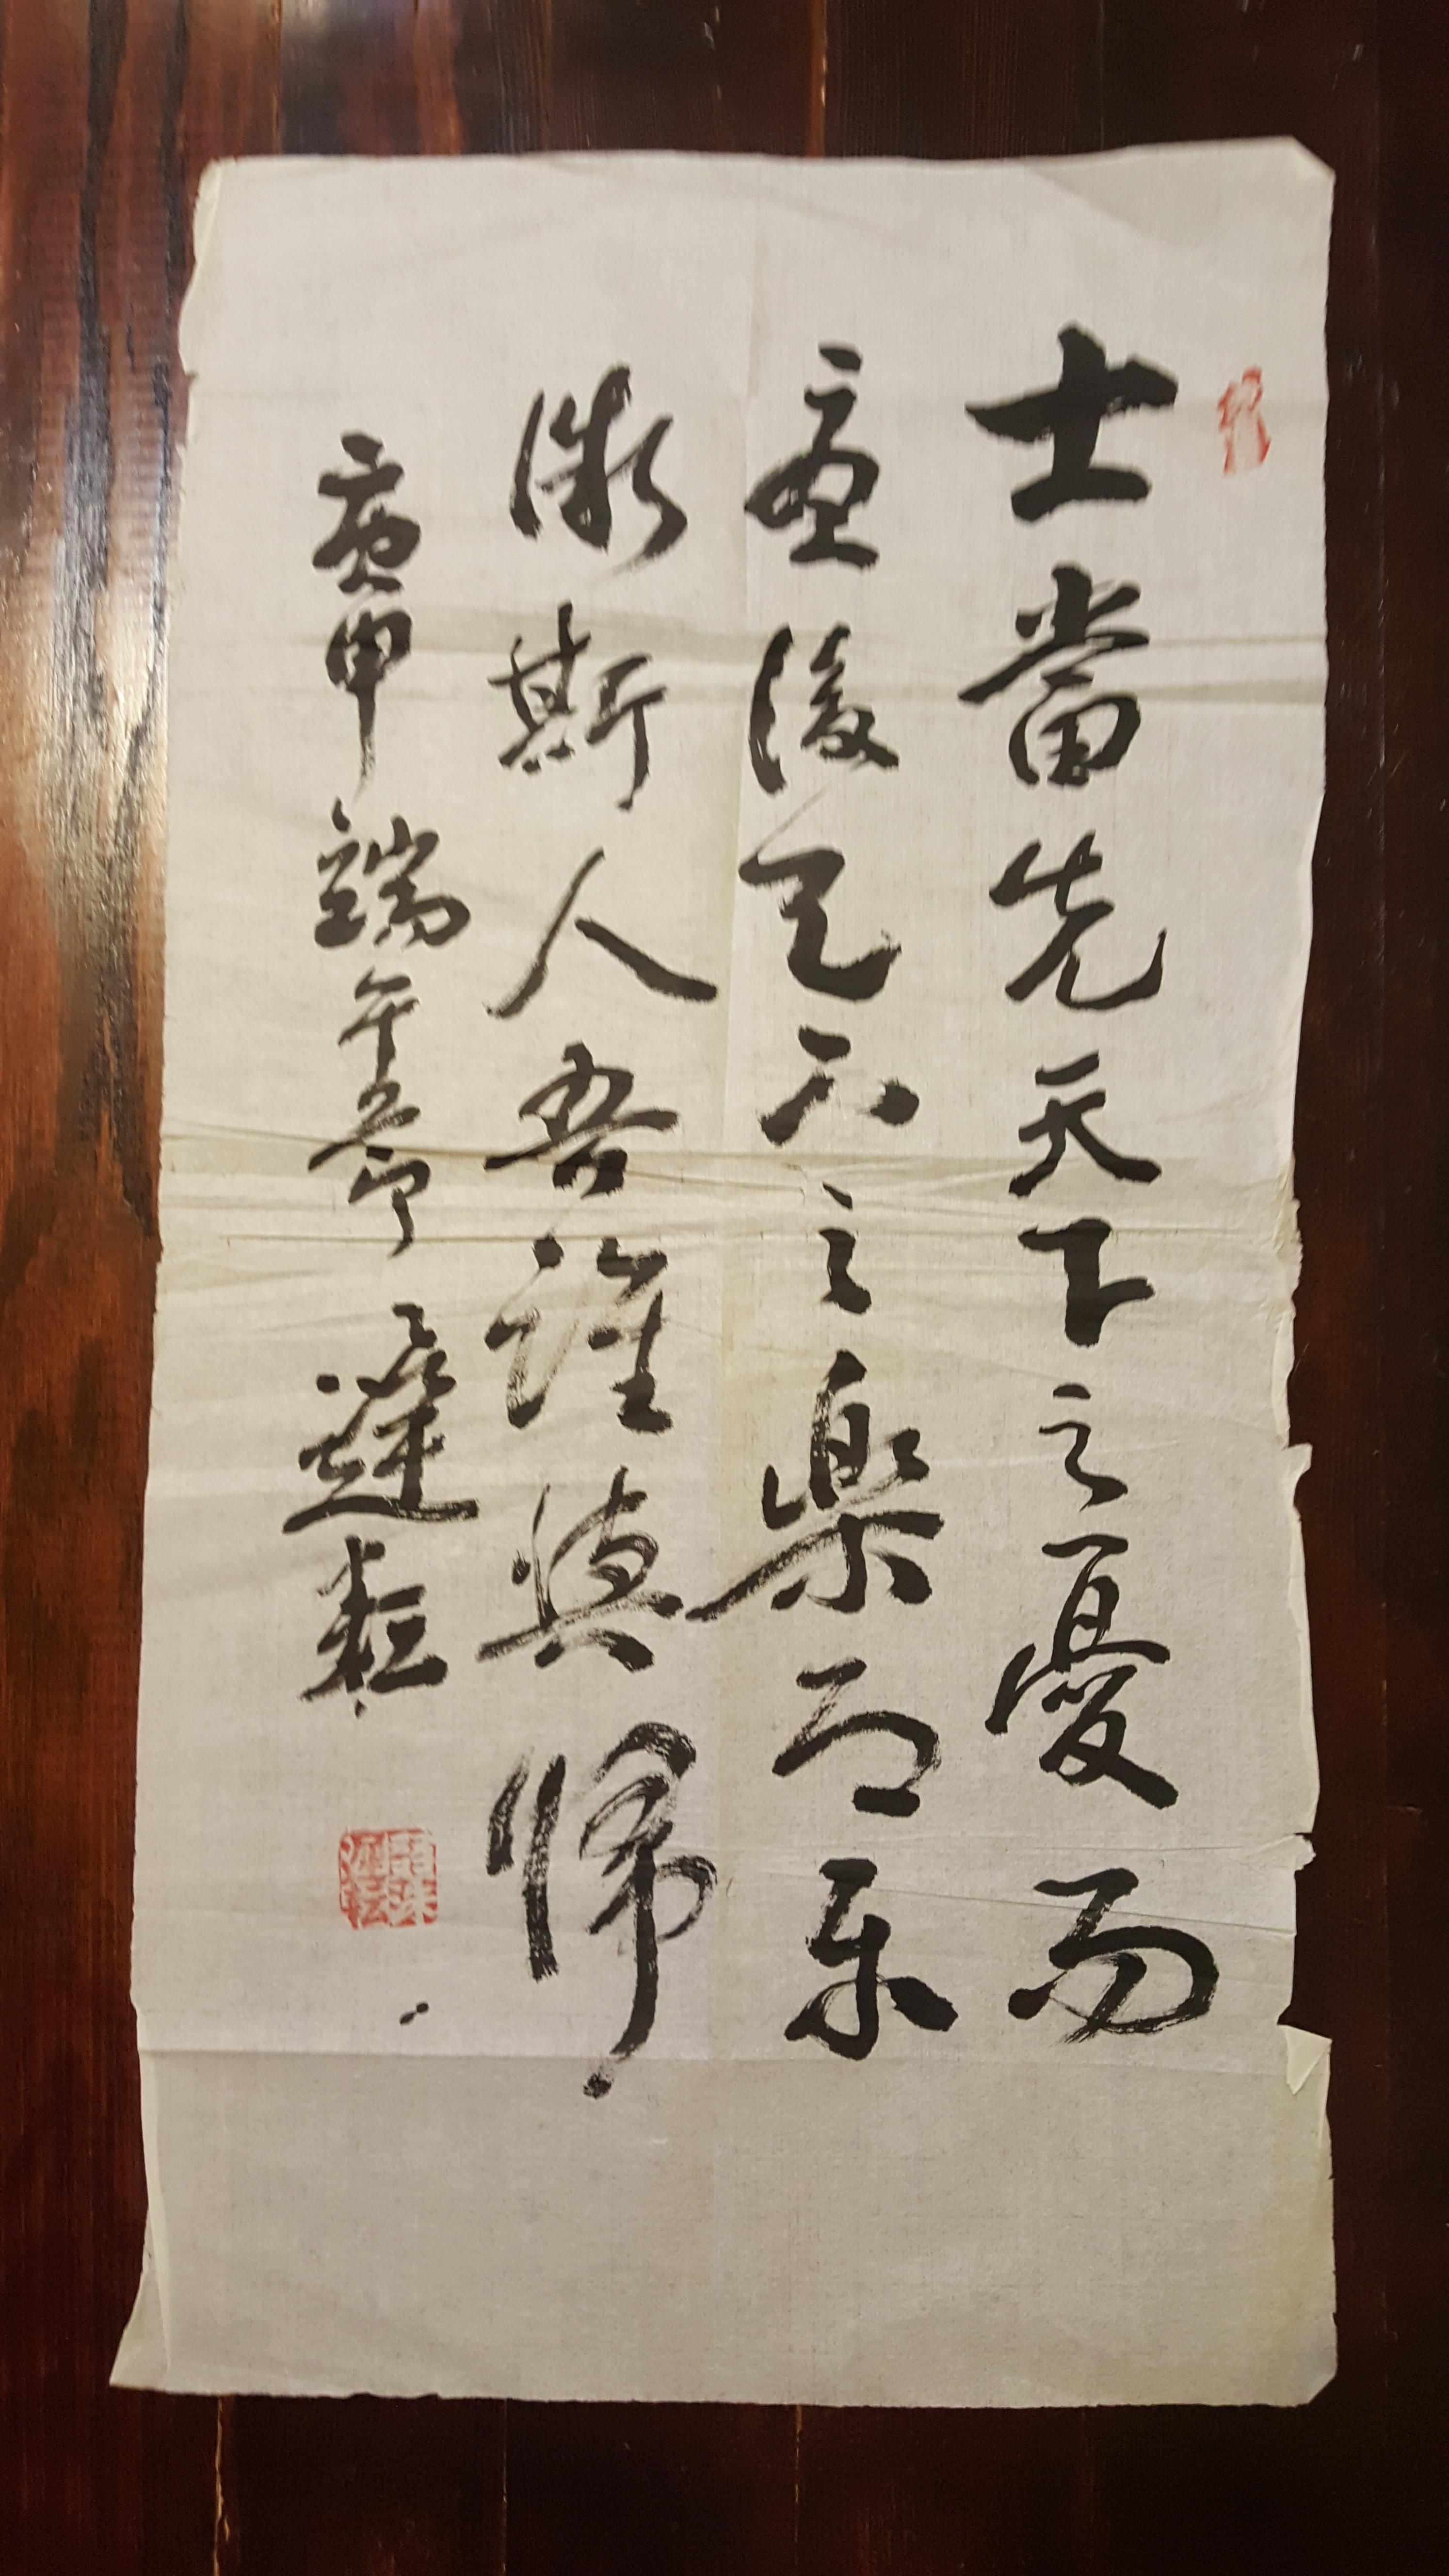 士當先天下之憂而
憂後天下之樂而樂
微斯人吾誰與歸
庚申端午節